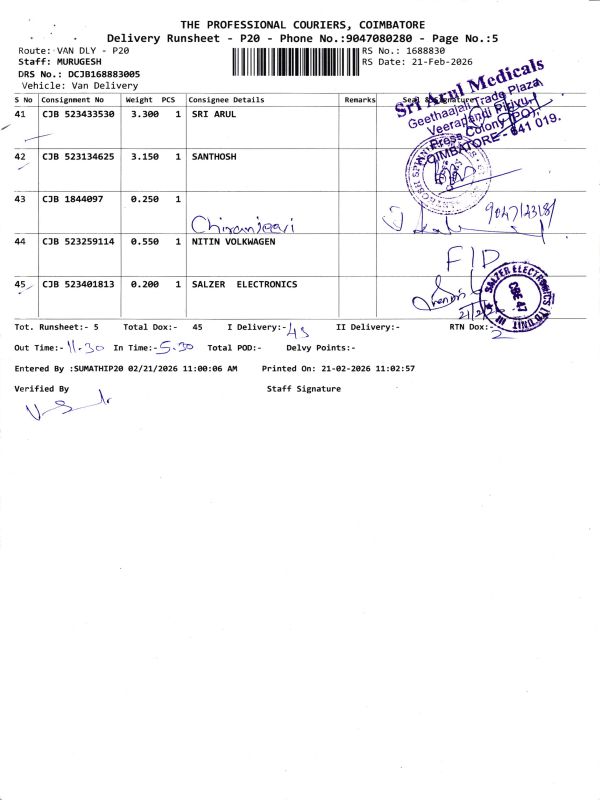 THE PROFESSIONAL COURIERS, COIMBATORE
Delivery Runsheet - P20 - Phone No.:9047080280 - Page No.:5
Route: VAN DLY - P20 RS No.: 1688830
Staff: MURUGESH RS Date: 21-Feb-2026
DRS No.: DCJB168883005
Vehicle: Van Delivery
S No Consignment No Weight PCS Consignee Details Remarks Seal & Signature
Sri Arul Medicals
Geethaajali Trade Plaza,
Veerapandi Pirivu,
Press Colony (PO),
COIMBATORE - 641 019.
41 CJB 523433530 3.300 1 SRI ARUL
42 CJB 523134625 3.150 1 SANTHOSH
43 CJB 1844097 0.250 1
Chiranjeevi
44 CJB 523259114 0.550 1 NITIN VOLKWAGEN
F/D
45 CJB 523401813 0.200 1 SALZER ELECTRONICS
SALZER ELECTRONICS LTD UNIT III
CBE-47
Tot. Runsheet:- 5 Total Dox:- 45 I Delivery:- 43 II Delivery:- RTN Dox:- 2
Out Time:- 11.30 In Time:- 5.30 Total POD:- Delvy Points:-
Entered By :SUMATHIP20 02/21/2026 11:00:06 AM Printed On: 21-02-2026 11:02:57
Verified By Staff Signature